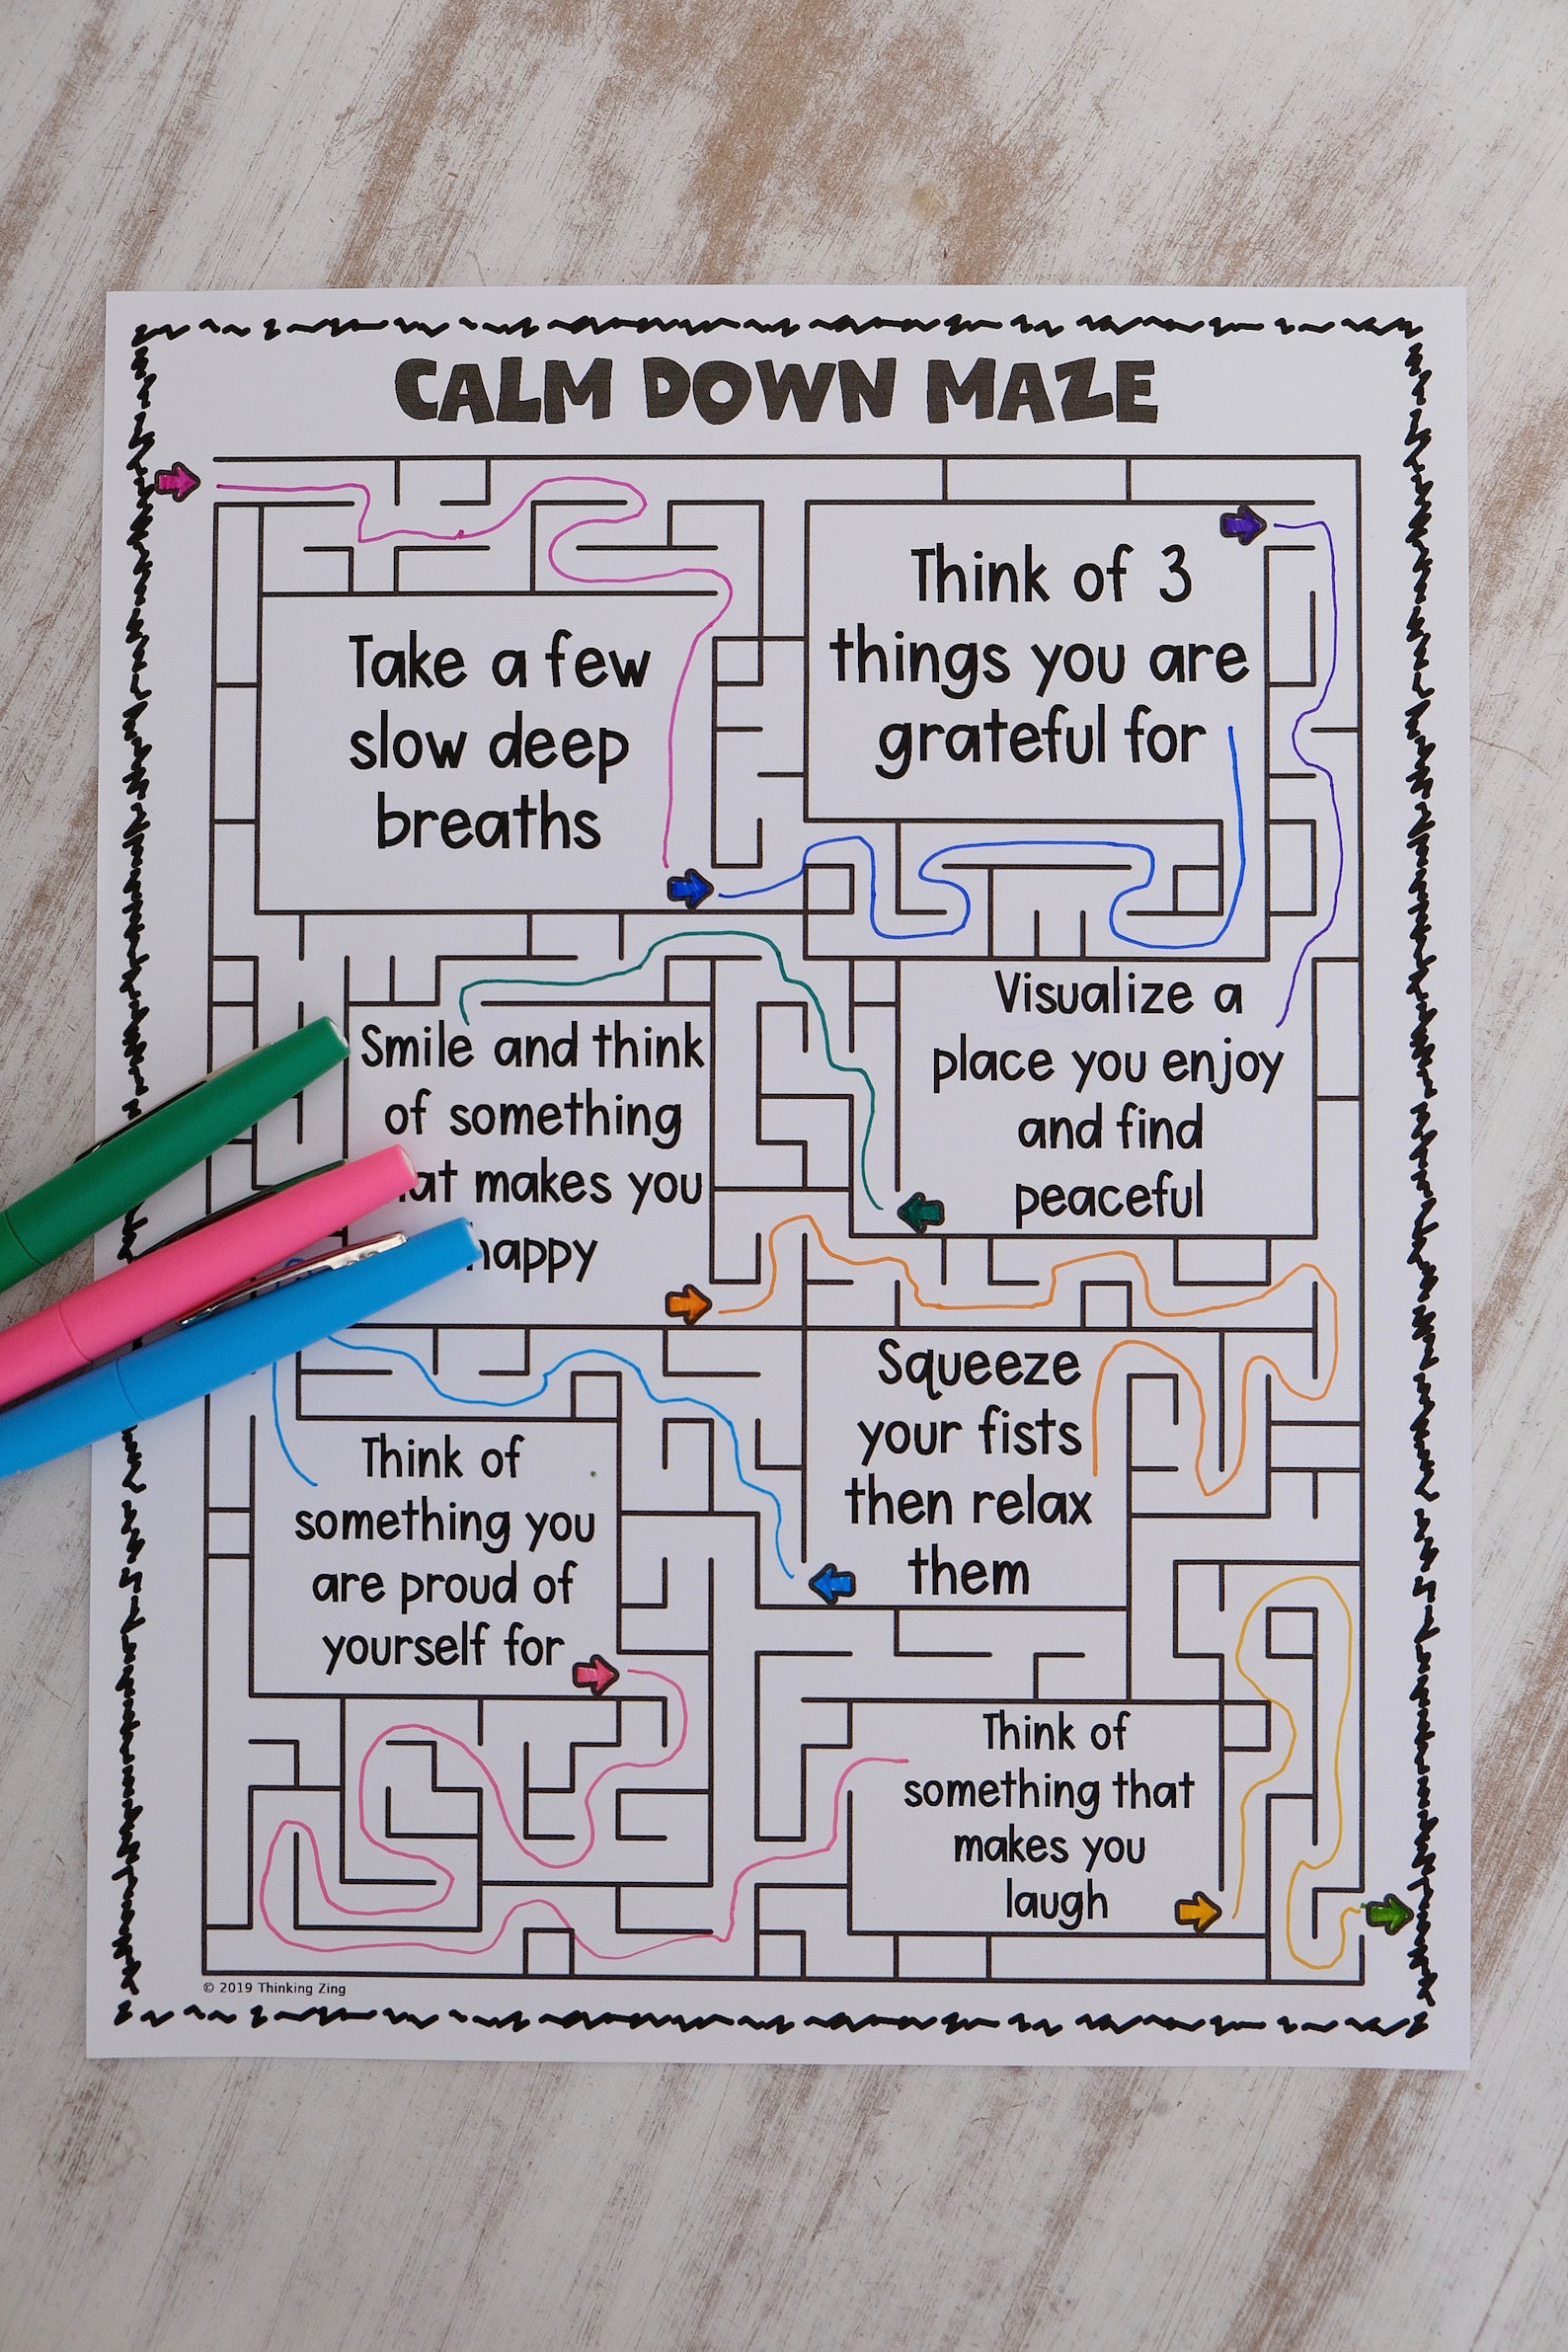 CALM DOWN MAZE
Take a few
slow deep
breaths
Think of 3
things you are
grateful for
Smile and think
of something
at makes you
happy
Visualize a
place you enjoy
and find
peaceful
Squeeze
your fists
then relax
them
Think of
something you
are proud of
yourself for
Think of
something that
makes you
laugh
© 2019 Thinking Zing